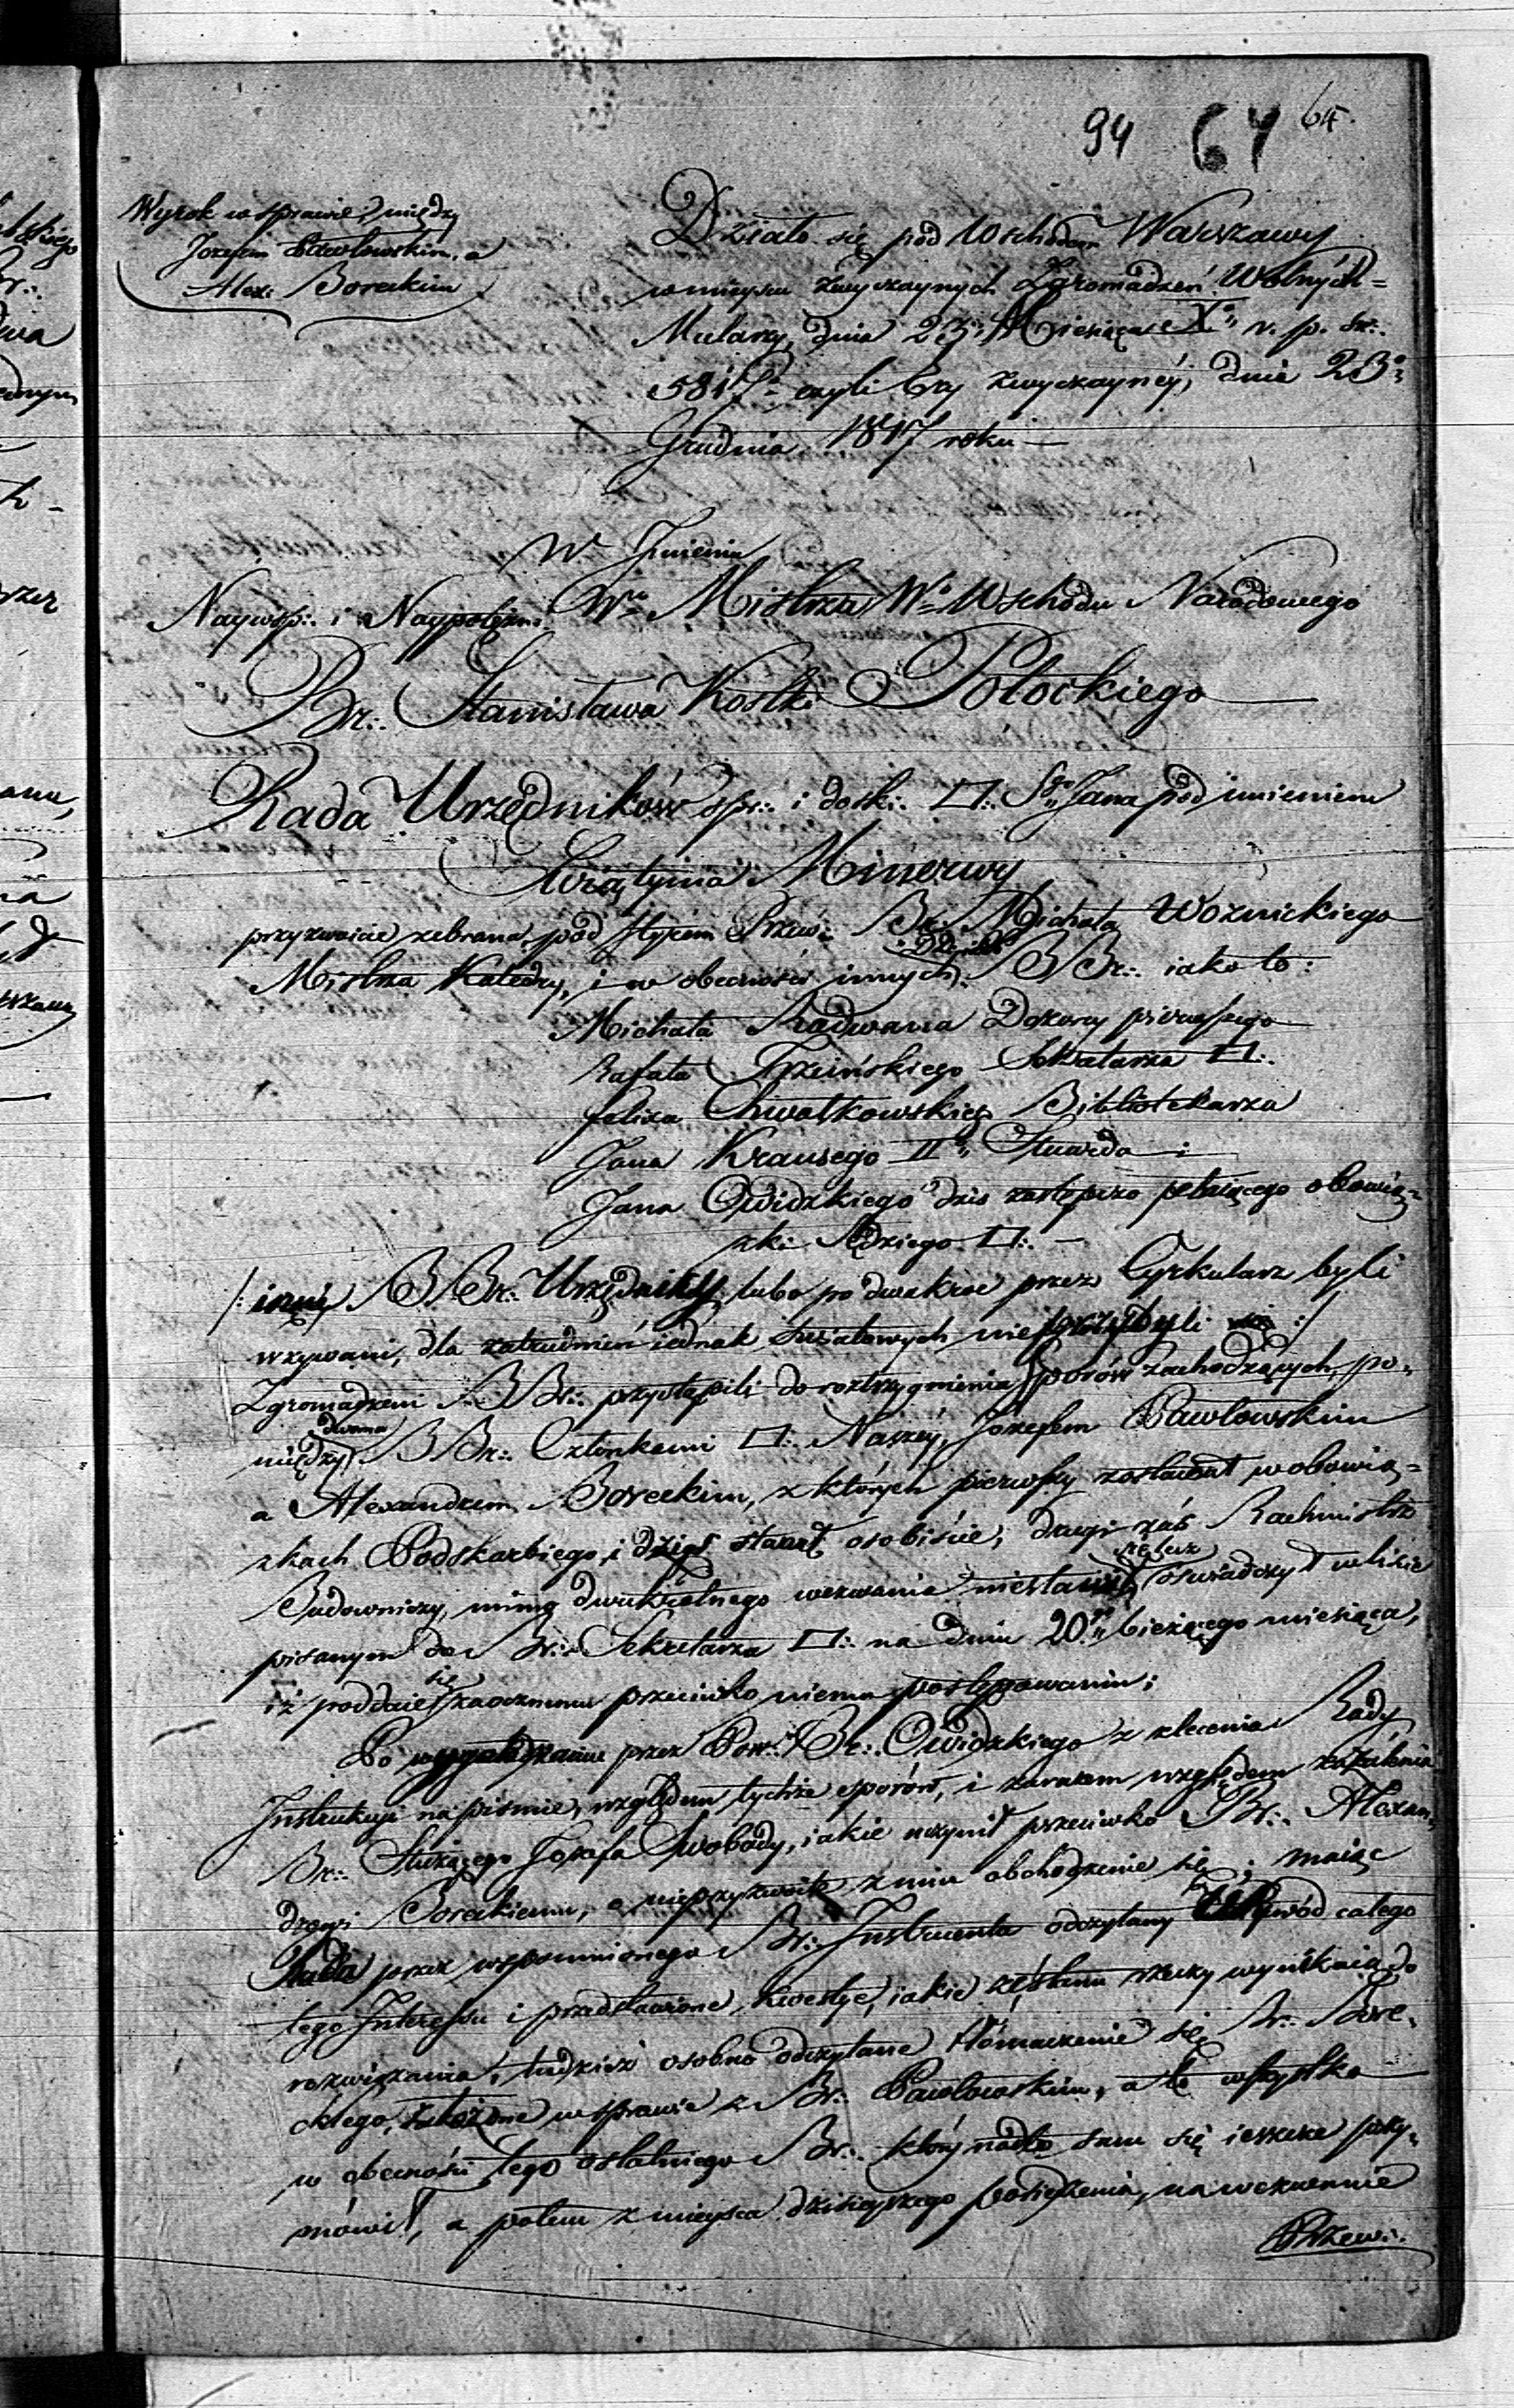 94 64 64.
Wyrok w sprawie między
Jozefem Pawłowskim, a
Alex: Boreckim
Działo się pod Wschodem Warszawy
w mieyscu zwyczaynych Zgromadzeń Wolnych=
Mularzy, dnia 23. Miesiąca X. r. p. św:.
5817. czyli Ery zwyczayney, dnia 23.
Grudnia 1817 roku —
W Jmieniu
Naywsp:. i Naypotężn:. Wo Mistrza Wo Wschodu Narodowego
Br:. Stanisława Kostki Potockiego
Rada Urzędników spr:. i dosk:. □:. Sgo Jana pod imieniem
Swiątynia Minerwy
przyzwoicie zebrana pod Styrem Przew:. Br:. Michała Woznickiego
Mistrza Katedry, i w obecności innych BBr:. iako to:
Michała Radwana Dozorcy pierwszego
Rafała Trzcińskiego Sekretarza □:.
Felixa Kwatkowskiego Bibliotekarza
Jana Krausego II Stuarda i
Jana Owidzkiego dziś zastępczo pełniącego obowią-
zki Sędziego □:. —
/: inni BBr:. Urzędnicy lubo po dwakroć przez Cyrkularz byli
wzywani, dla zatrudnień iednak światowych nie przybyli :/
Zgromadzeni BBr:. przystąpili do roztrzygnienia sporów zachodzących, po-
dwoma
między BBr:. Członkami □:. Naszey, Jozefem Pawłowskim
a Alexandrem Boreckim, z których pierwszy zostawał w obowią=
zkach Podskarbiego, i dziś stawał osobiście, drugi zaś Rachmistrz
Budowniczy, mimo dwukrotnego wezwania niestawił, oświadczył w liście
pisanym do Br:. Sekretarza □:. na dniu 20. bieżącego miesiąca,
się
iż poddaie zaocznemu przeciwko niemu postępowaniu;
Po przez Pow:. Br:. Owidzkiego z zlecenia Rady
Instrukcyi na piśmie, względem tychże sporów, i zarazem względem zażalenia
Br:. Służącego Jozefa Swobody, iakie uczynił przeciwko Br:. Alexan-
drowi Boreckiemu, o nieprzyzwoite z nim obchodzenie się; maiąc
Rada przez wspomnionego Br:. Instruenta odczytany Wywód całego
tego Interessu i przedstawione kwestye, iakie ze stanu rzeczy wynikaią do
rozwiązania, tudzież osobno odczytane tłómaczenie się Br:. Bore-
ckiego, złożone w sprawie z Br:. Pawłowskim, a to wszystko
w obecności tego ostatniego Br:. który nadto sam się ieszcze przy-
mówił, a potem z mieysca dzisieyszego posiedzenia, na wezwanie
Przew:.